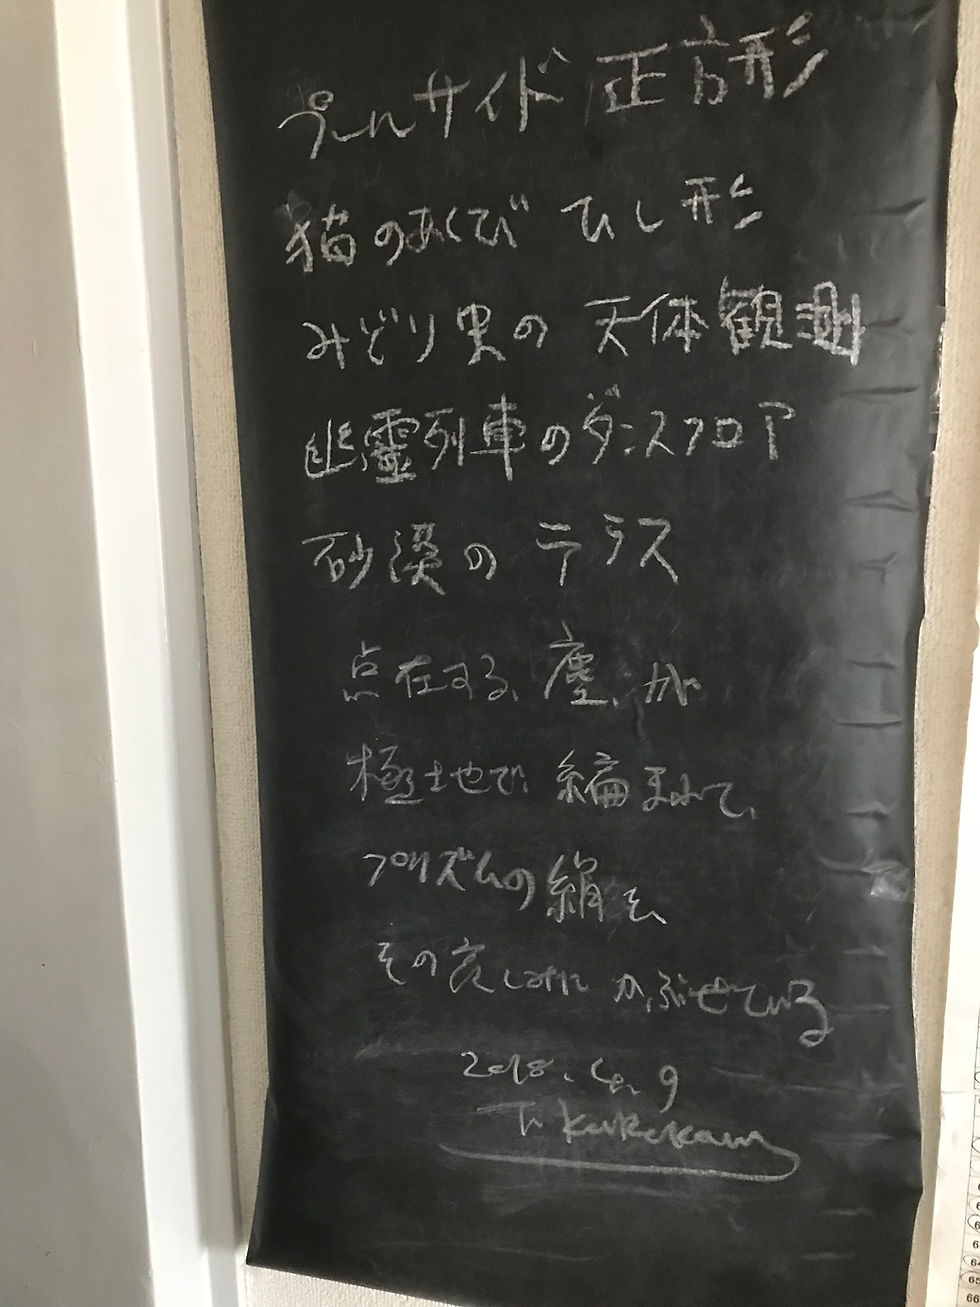 プールサイド 正方形
猫のあくび ひし形
みどり虫の 天体観測
幽霊列車のダンスフロア
砂漠の テラス
点在する、塵、が
極地で 編まれて、
プリズムの絹を、
その哀しみに かぶせている
2018. 6. 9
64
65
66